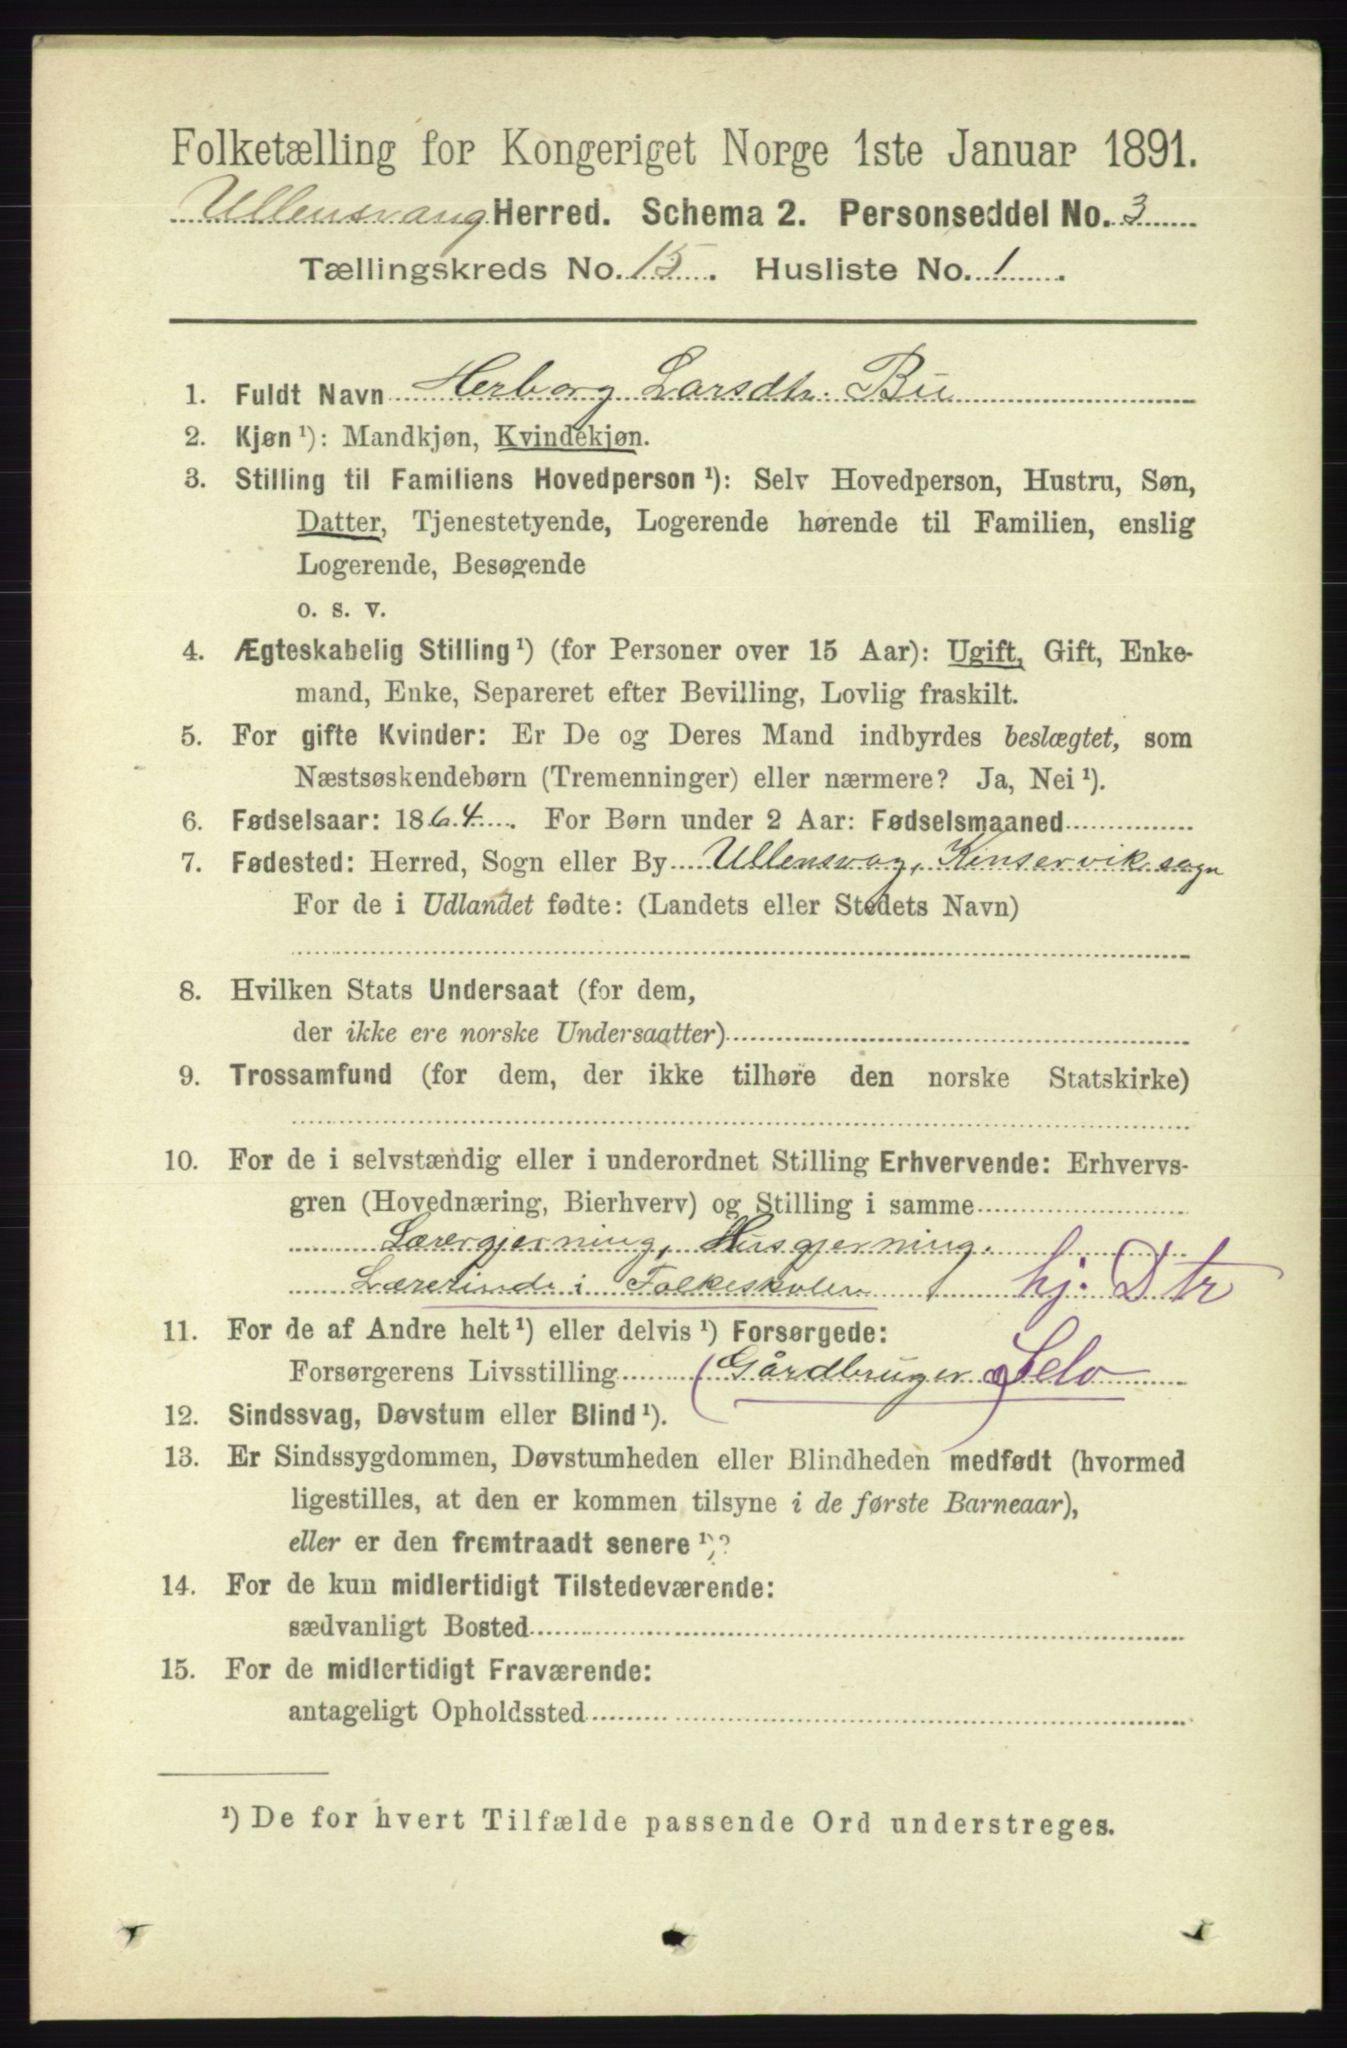 Folketælling for Kongeriget Norge 1ste Januar 1891.
Ullensvang Herred. Schema 2. Personseddel No. 3
Tællingskreds No. 15. Husliste No. 1.
1. Fuldt Navn Herborg Larsdtr. Bu
2. Kjøn ¹): Mandkjøn, Kvindekjøn.
3. Stilling til Familiens Hovedperson ¹): Selv Hovedperson, Hustru, Søn,
Datter, Tjenestetyende, Logerende hørende til Familien, enslig
Logerende, Besøgende
o. s. v.
4. Ægteskabelig Stilling ¹) (for Personer over 15 Aar): Ugift, Gift, Enke-
mand, Enke, Separeret efter Bevilling, Lovlig fraskilt.
5. For gifte Kvinder: Er De og Deres Mand indbyrdes beslægtet, som
Næstsøskendebørn (Tremenninger) eller nærmere? Ja, Nei ¹).
6. Fødselsaar: 1864. For Børn under 2 Aar: Fødselsmaaned
7. Fødested: Herred, Sogn eller By Ullensvag, Kinservik sogn
For de i Udlandet fødte: (Landets eller Stedets Navn)
8. Hvilken Stats Undersaat (for dem,
der ikke ere norske Undersaatter)
9. Trossamfund (for dem, der ikke tilhøre den norske Statskirke)
10. For de i selvstændig eller i underordnet Stilling Erhvervende: Erhvervs-
gren (Hovednæring, Bierhverv) og Stilling i samme
Lærergjerning, Husgjerning.
Lærerinde i Folkeskolen hj. Dtr
11. For de af Andre helt ¹) eller delvis ¹) Forsørgede:
Forsørgerens Livsstilling (Gårdbruger) Selv
12. Sindssvag, Døvstum eller Blind ¹).
13. Er Sindssygdommen, Døvstumheden eller Blindheden medfødt (hvormed
ligestilles, at den er kommen tilsyne i de første Barneaar),
eller er den fremtraadt senere ¹)?
14. For de kun midlertidigt Tilstedeværende:
sædvanligt Bosted
15. For de midlertidigt Fraværende:
antageligt Opholdssted
¹) De for hvert Tilfælde passende Ord understreges.